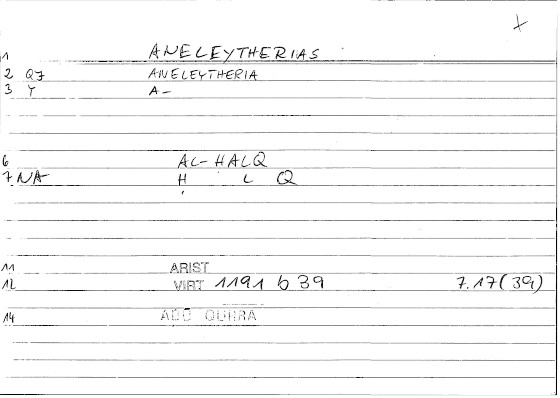 +
1 ANELEYTHERIAS
2 Q7 ANELEYTHERIA
3 Y A-
6 AL-HALQ
7 NA H L Q
11 ARIST
12 VIRT 1191 b 39 7.17(39)
14 ABU QURRA